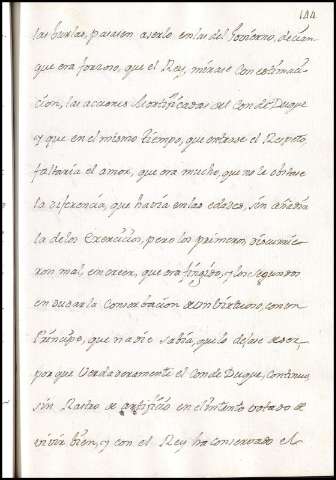 144
las burlas, pasasen aserlo enlas del Govierno, decian
que era forzoso, que el Rey, mirase con estimaci-
cion, las acciones Mortificadas del Conde Duque
y que en el mismo tiempo, que entrase el Respeto,
faltaria el amor, que era mucho, que no le obstase
la diferencia, que havia enlas edades, sin añadir
la delos Exercicios, pero los primeros, discurrie
ron mal en creer, que era fingido, y los segundos
en dudar la Conservacion de un birtuoso, con un
Principe, que nadie sabia, que lo dejase de ser,
porque Verdaderamente el Conde Duque, Continuo,
sin Rastro de artificio en el intento votado de
vivir bien, y con el Rey ha conservado el